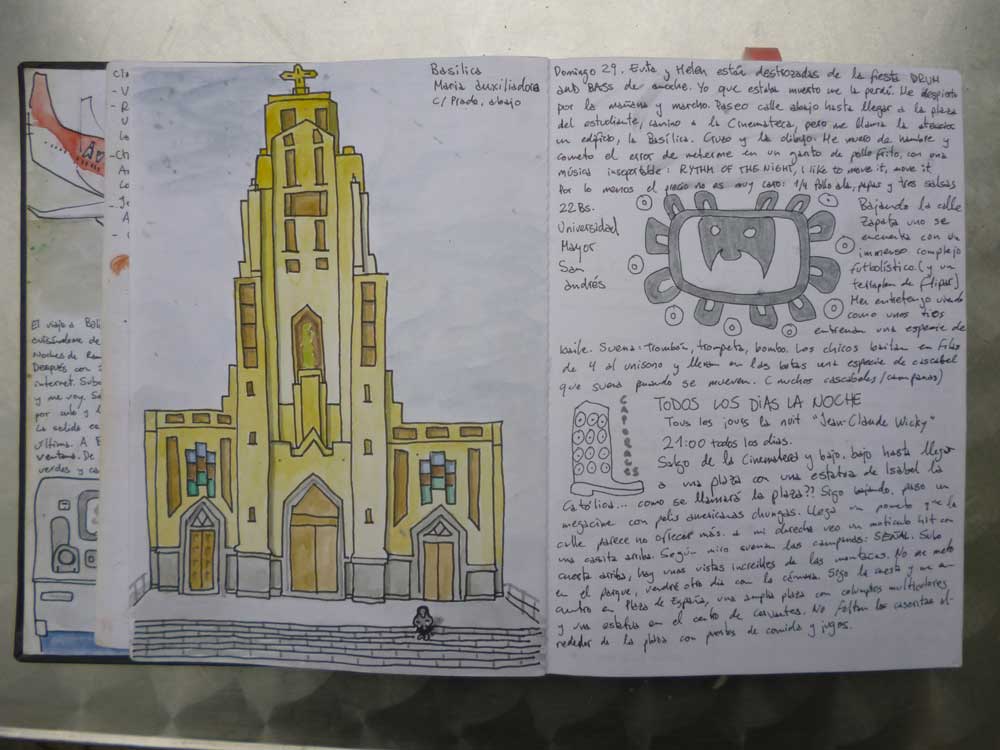 Basílica
Maria Auxiliadora
C/ Prado, abajo
Domingo 29. Evta y Helen están destrozadas de la fiesta DRUM
AND BASS de anoche. Yo que estaba muerto me la perdí. Me despierto
por la mañana y marcho. Paseo calle abajo hasta llegar a la plaza
del estudiante, camino a la Cinemateca, pero me llama la atención
un edificio, la Basílica. Cruzo y la dibujo. Me muero de hambre y
cometo el error de meterme en un garito de pollo frito, con una
música insoportable: RYTHM OF THE NIGHT, I like to move it, move it
Por lo menos el precio no es muy caro: 1/4 pollo ala, papas y tres salsas
22 Bs.
Universidad
Mayor
San
Andrés
Bajando la calle
Zapata uno se
encuentra con un
inmenso complejo
futbolístico (y un
terraplen de flipar)
Me entretengo viendo
como unos tíos
entrenan una especie de
baile. Suena: Trombón, trompeta, bombo. Los chicos bailan en filas
de 4 al unísono y llevan en las botas una especie de cascabel
que suena cuando se mueven. (muchos cascabeles/campanas)
CAPORALES
TODOS LOS DIAS LA NOCHE
Tous les jours la nuit "Jean-Claude Wicky"
21:00 todos los días.
Salgo de la Cinemateca y bajo, bajo hasta llegar
a una plaza con una estatua de Isabel la
Católica... como se llamará la plaza?? Sigo bajando, paso un
megacine con pelis americanas chungas. Llega un momento y la
calle parece no ofrecer más. A mi derecha veo un montículo con
una casita arriba. Según miro suenan las campanas: SEÑAL. Subo
cuesta arriba, hay unas vistas increíbles de las montañas. No me meto
en el parque, vendré otro día con la cámara. Sigo la cuesta y me en
cuentro en Plaza de España, una amplia plaza con columpios multicolores
y una estatua en el centro de cervantes. No faltan las casetitas al-
rededor de la plaza con puestos de comida y jugos.
El viaje a Boli
Noches de
Después con
internet. Subo
y me voy.
por
la salida es
última. A E
ventana. De
verdes y ca